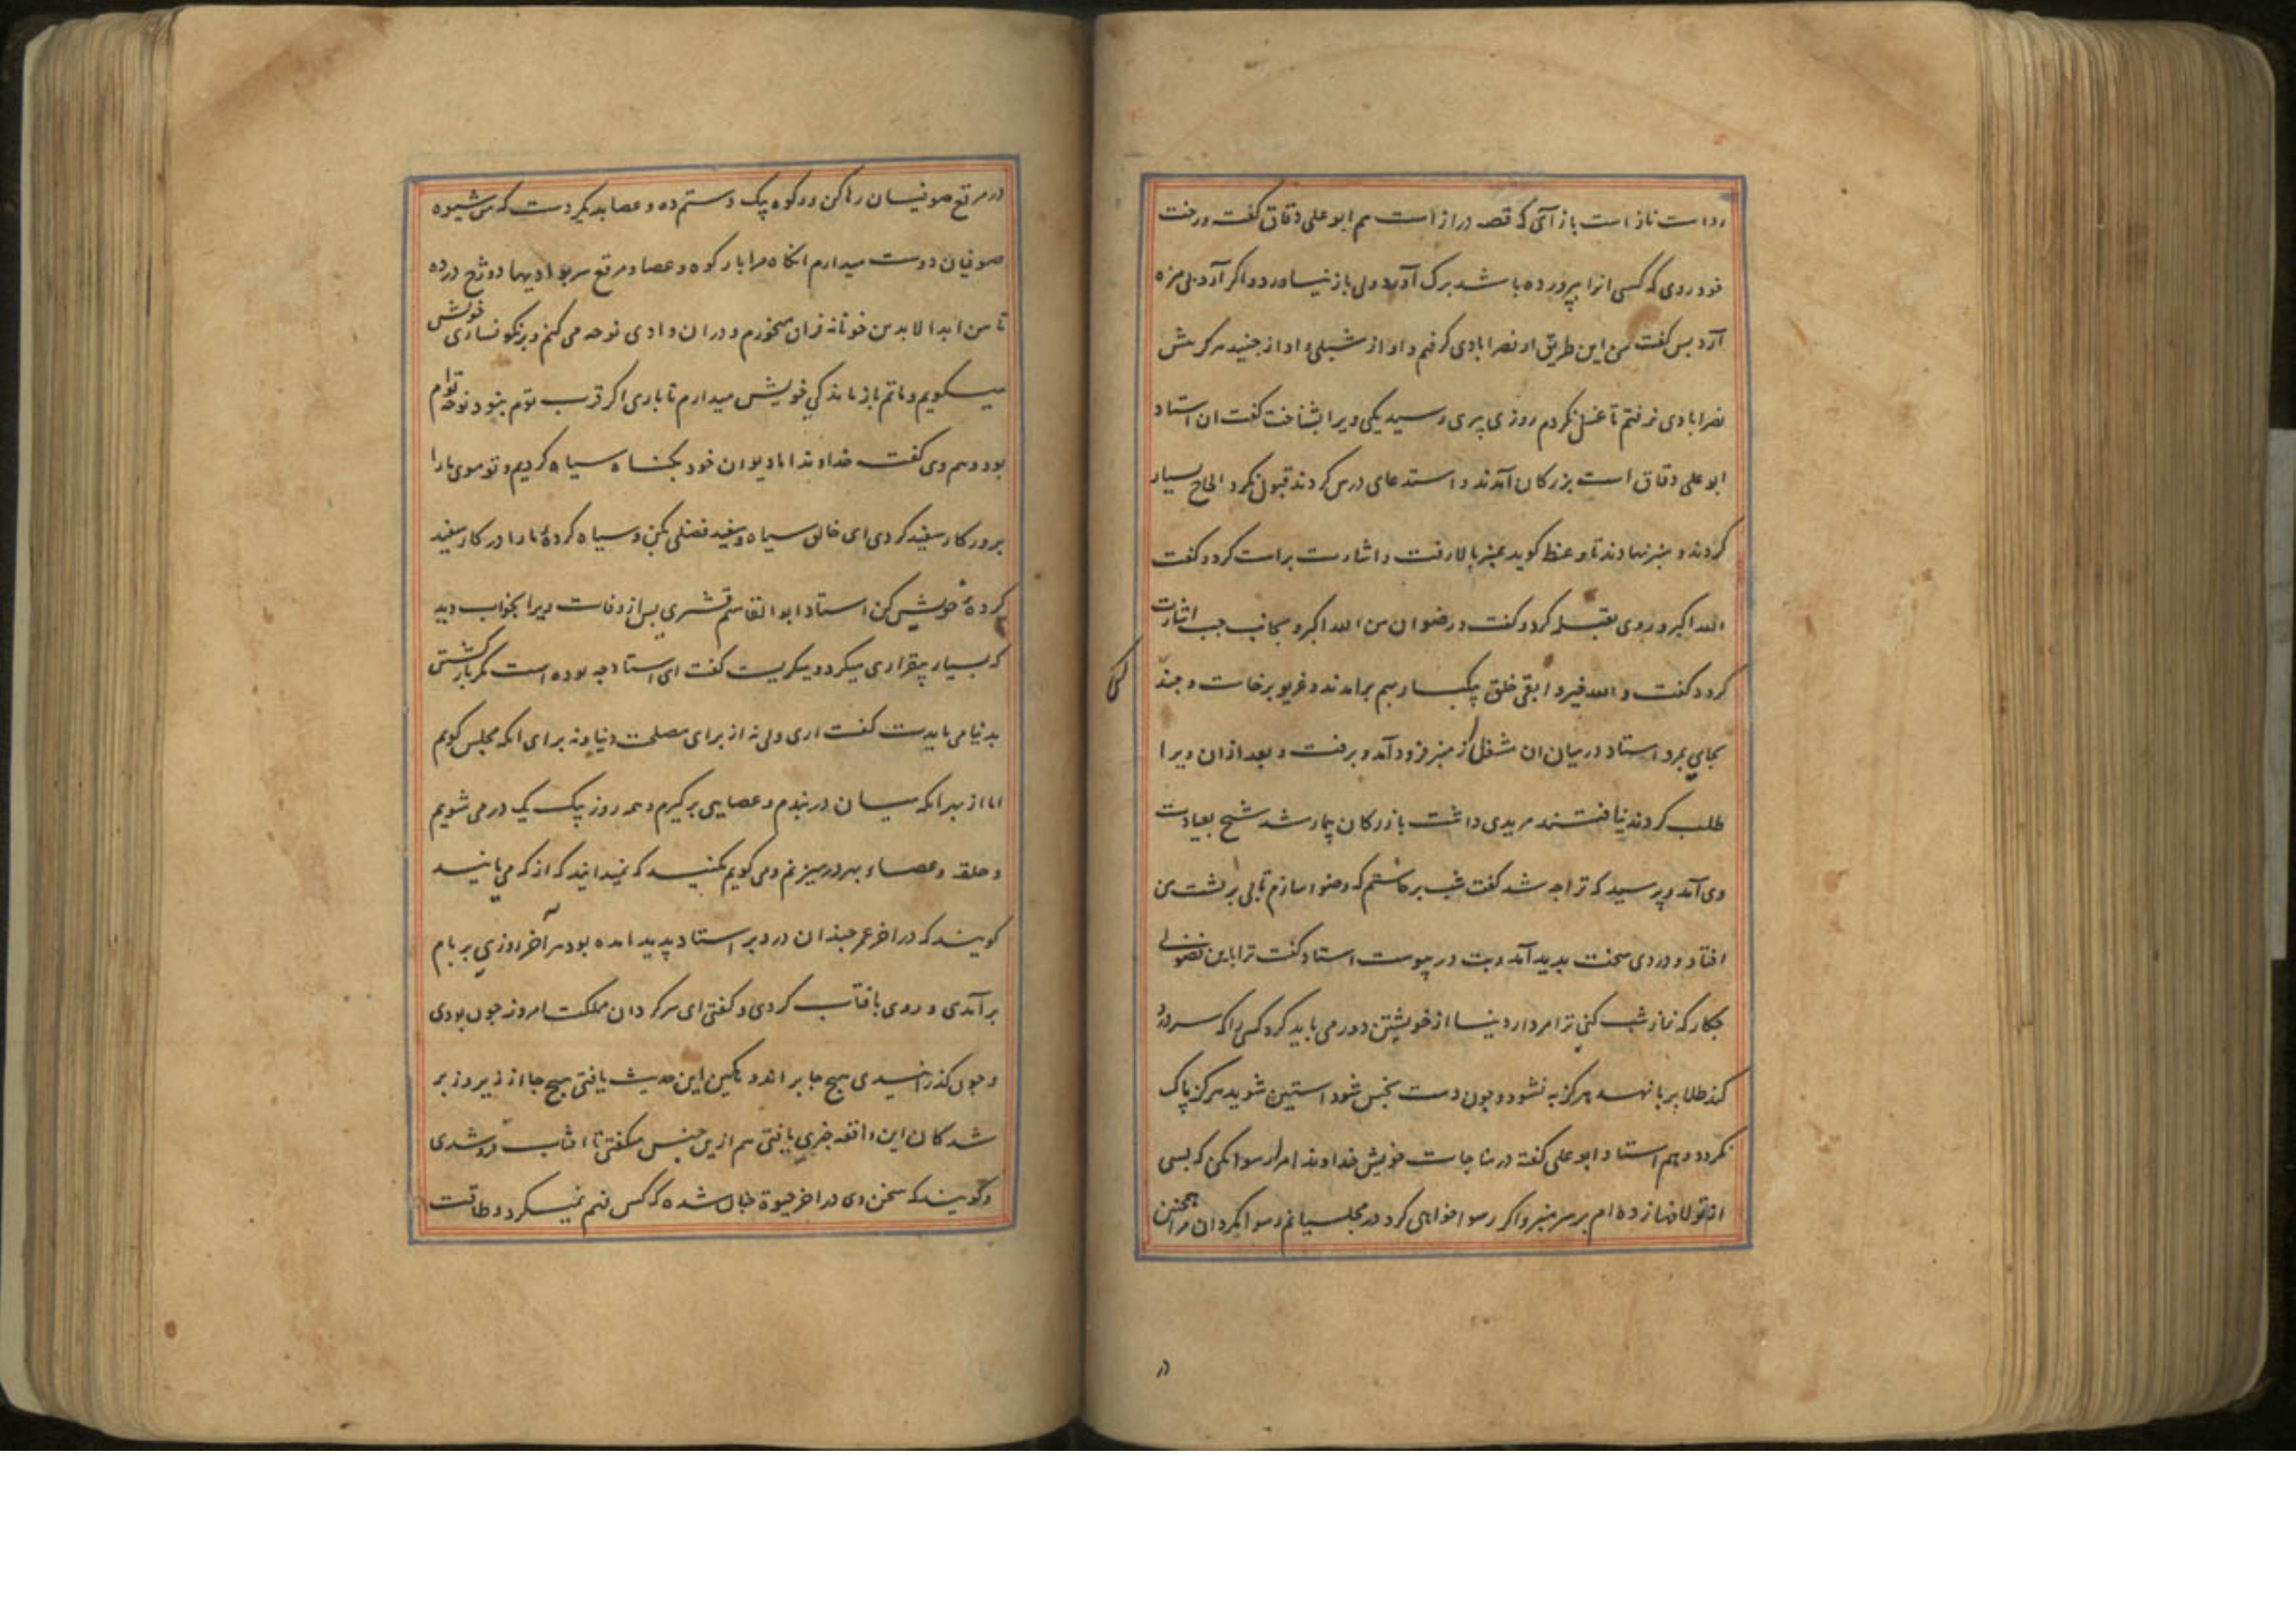 رداست ناز است باز آئی که قصه دراز است هم ابو علی دقاق گفت درخت
خود روی که کسی انرا بپرورده باشد برک آورد ولی باز نیاورد و اگر آرد بی مزه
آرد پس گفت من این طریق از نصرابادی گرفتم و او از شبلی و او از جنید هرگز پیش
نصرابادی نرفتم تا غسل نکردم روزی پری رسید یکی ویرا بشناخت گفت ان استاد
ابو علی دقاق است بزرکان آمدند و استدعای درس کردند قبول نکرد الحاح بسیار
کردند و منبر نهادند تا وعظ گوید بمنبر بالا رفت و اشارت براست کرد و گفت
الله اکبر و روی بقبله کرد و گفت و رضوان من الله اکبر و بجانب چپ اشارت
کرد و گفت و الله خیر و ابقی خلق یکبار بهم برامدند و غریو برخاست و چند
بجای بمرد استاد درمیان ان شغل از منبر فرود آمد و برفت و بعد ازان ویرا
طلب کردند نیافتند مریدی داشت بازرکان بیمار شد شیخ بعیادت
وی آمد و پرسید که ترا چه شد گفت شب برخاستم که وضو سازم تابی بر پشت من
افتاد و دردی سخت بدید آمد و تب در پیوست استاد گفت ترا با این فضولی
چکار که نماز شب کنی ترا مردار دنیا از خویشتن دور می باید کرد کسی را که سر درد
کند طلا بر پا نهد هرگز به نشود و چون دست نجس شود استین شوید هرگز پاک
نکردد و هم استاد ابو علی گفته در مناجات خویش خداوندا مرا رسوا مکن که بسی
از تو لافها زده ام بر سر منبر و اگر رسوا خواهی کرد در مجلسیانم رسوا مکردان مرا همچنین
در
در مرقع صوفیان رها کن و رکوه یک دستم ده و عصا بدیکر دست که من شیوه
صوفیان دوست میدارم انکاه مرا با رکوه و عصا و مرقع سر بوادیهاء دوزخ درده
تا من ابدا لابدین خونابه فراق میخورم و دران وادی نوحه می کنم و برنکونساری خویش
میکویم و ماتم بازماندکی خویش میدارم تا باری اگر قرب توم نبود نوحه توام
بود و هم وی گفت خداوندا ما دیوان خود بکناه سیاه کردیم و تو موی ما را
بروزکار سفید کردی ای خالق سیاه و سفید فضلی بکن و سیاه کردهٔ ما را در کار سفید
کردهٔ خویش کن استاد ابو القاسم قشری پس از وفات ویرا بخواب دید
که بسیار بیقراری میکرد و میکریست گفت ای استاد چه بوده است مکر بازکشتن
بدنیا می بایدت گفت اری ولی نه از برای مصلحت دنیا و نه برای انکه مجلس کویم
اما از بهر انکه میان دربندم و عصایی برکیرم و همه روز یک یک در می شویم
و حلقه و عصاء بهر در میزنم و می کویم مکنید که نمیدانید که از که می مانید
کویند که در اخر عمر چندان درد بر استاد پدید امده بود هر آخر روزی بر بام
برآمدی و روی بافتاب کردی و گفتی ای سرکردان مملکت امروز چون بودی
و چون کذرانیدی هیچ جا بر اندوهکین این حدیث یافتی هیچ جا از زیر و زبر
شدکان این واقعه خبری یافتی هم ازین جنس میگفتی تا افتاب فروشدی
و گویند که سخن وی در اخر حیوة چنان شده که کس فهم نمیکرد و طاقت